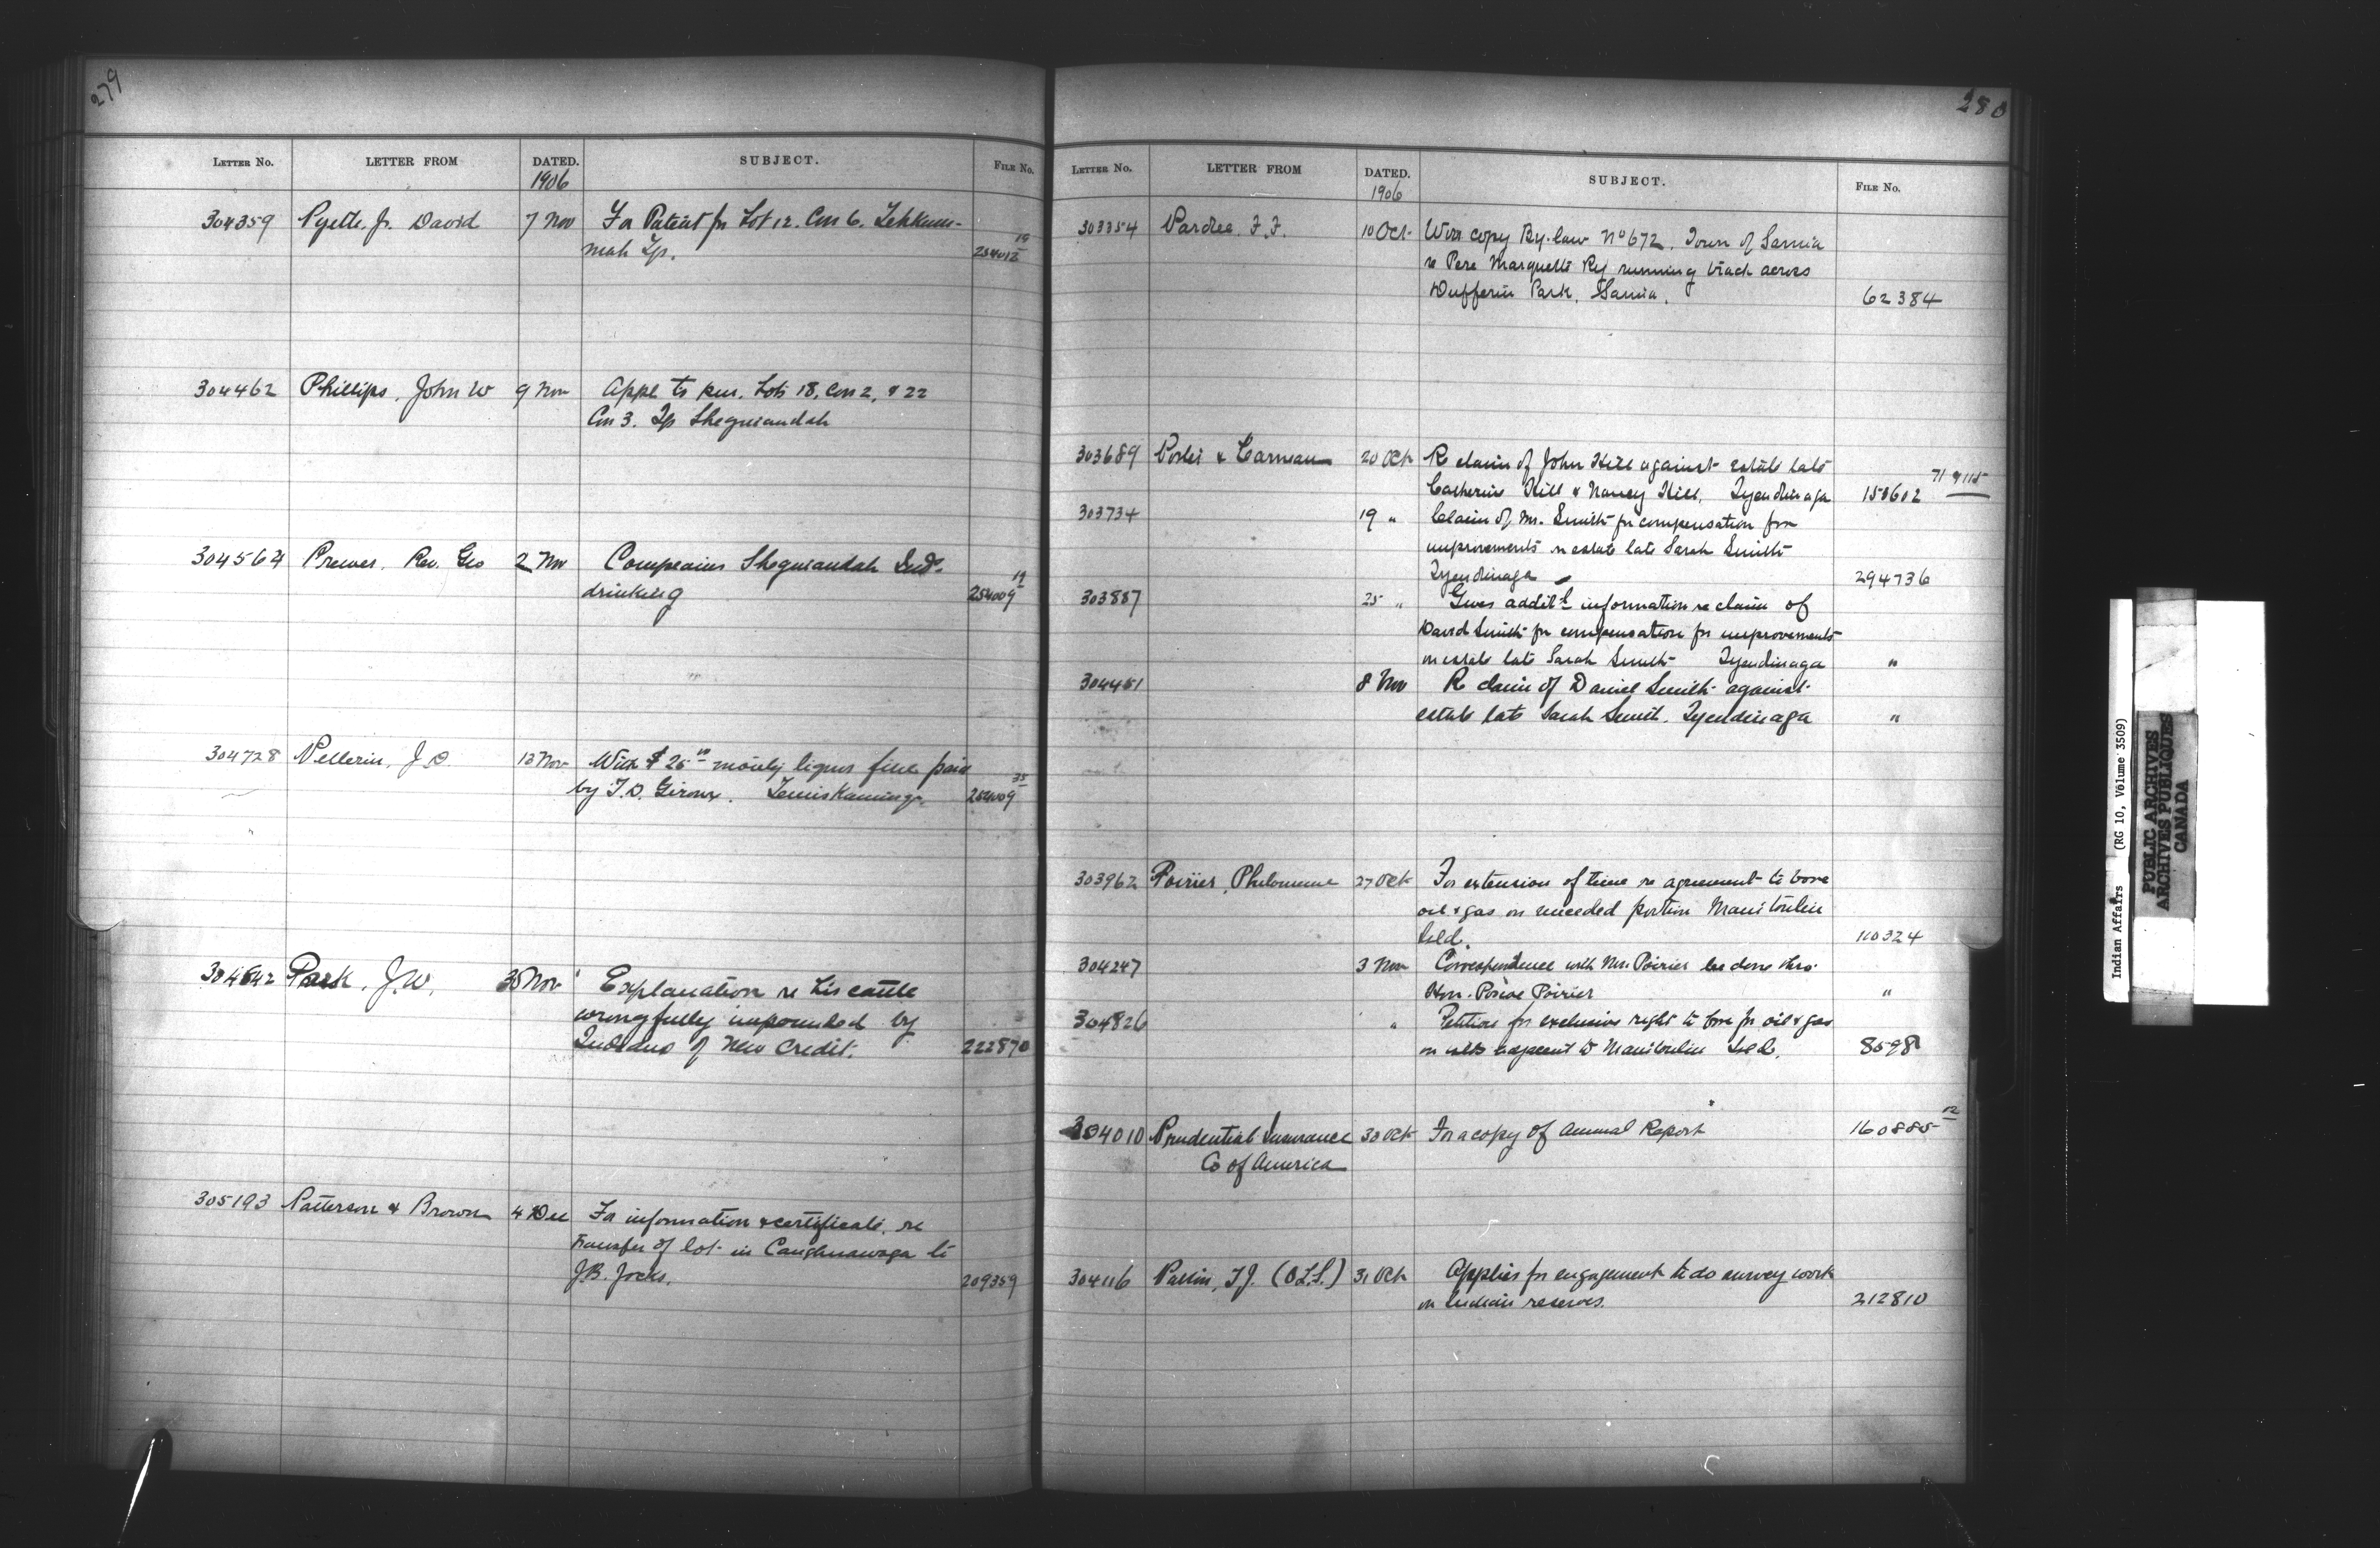 279
LETTER NO. LETTER FROM DATED. SUBJECT. FILE NO.
1906
304359 Pyette, Jr. David 7 Nov For Patent for Lot 12. Con 6. Tehkum-
mah Tp. 254012 19
304462 Phillips, John W 9 Nov Appl to pur. Lots 18, Con 2, & 22
Con 3. Tp Sheguiandah
304564 Prewer, Rev. Geo 2 Nov Complains Sheguiandah Inds.
drinking 254009 19
304728 Pellerin, J.O. 13 Nov With $25.00 moiety liquor fine paid
by T.O. Giroux. Temiskaming. 254009 35
Park, J.W. 30 Nov Explanation re his cattle
wrongfully impounded by
Indians of New Credit. 222870
305193 Patterson & Brown 4 Dec For information & certificate re
transfer of lot in Caughnawaga to
J.B. Jocks. 209359
280
LETTER NO. LETTER FROM DATED. SUBJECT. FILE NO.
1906
303354 Pardee, F.F. 10 Oct. With copy By-law No 672. Town of Sarnia
re Pere Marquette Ry running track across
Dufferin Park, Sarnia. 62384
303689 & Carneau 20 Oct R claim of John Hill against estate late
Catherine Hill & Nancy Hill, Tyendinaga 158612
303734 19 " Claim of Mr. Smith for compensation for
improvements on estate late Sarah Smith
Tyendinaga 294736
303887 25 " Gives addit'l information re claim of
David Smith for compensation for improvements
on estate late Sarah Smith Tyendinaga "
304451 8 Nov R claim of Daniel Smith against
estate late Sarah Smith, Tyendinaga "
303962 Poirier, Philomene 27 Oct For extension of time re agreement to bore
oil & gas on unceded portion Manitoulin
Isld. 110324
304247 3 Nov Correspondence with Mrs. Poirier be done thro.
Hon. Pascal Poirier "
304826 " Petition for exclusive right to bore for oil & gas
on islds adjacent to Manitoulin Isld. 8598
304010 Prudential Insurance 30 Oct For a copy of Annual Report 160885 12
Co of America
304116 Patten, T.J. (O.L.S.) 31 Oct Applies for engagement to do survey work
on Indian reserves. 212810
Indian Affairs (RG 10, Volume 3509)
PUBLIC ARCHIVES
ARCHIVES PUBLIQUES
CANADA